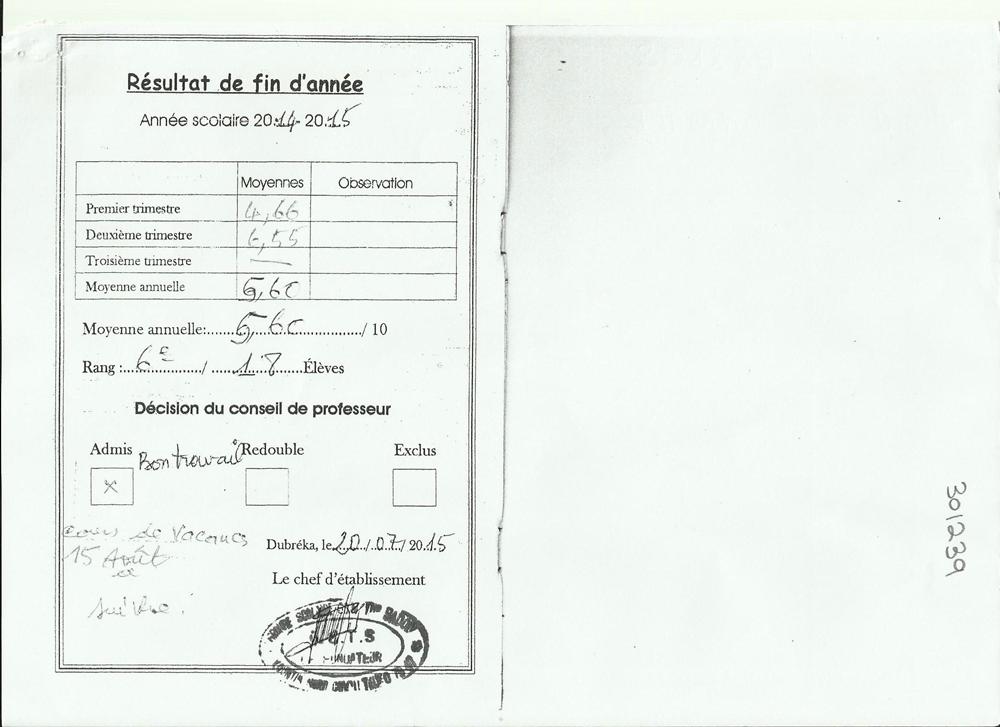 Résultat de fin d'année
Année scolaire 2014-2015
Moyennes Observation
Premier trimestre 4,66
Deuxième trimestre 6,55
Troisième trimestre —
Moyenne annuelle 5,60
Moyenne annuelle:.......5,60............../ 10
Rang :..6e............/ ......18.......Élèves
Décision du conseil de professeur
Admis Bon travail Redouble Exclus
x
cours de Vacances
15 Août
Dubréka, le 20/.07./ 2015
Le chef d'établissement
G.T.S
FONDATEUR
301239